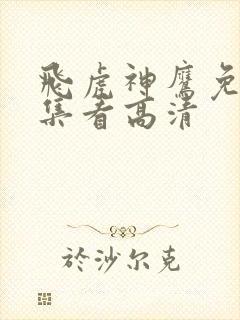 飛虎神鷹免
集看高清
於沙尔克